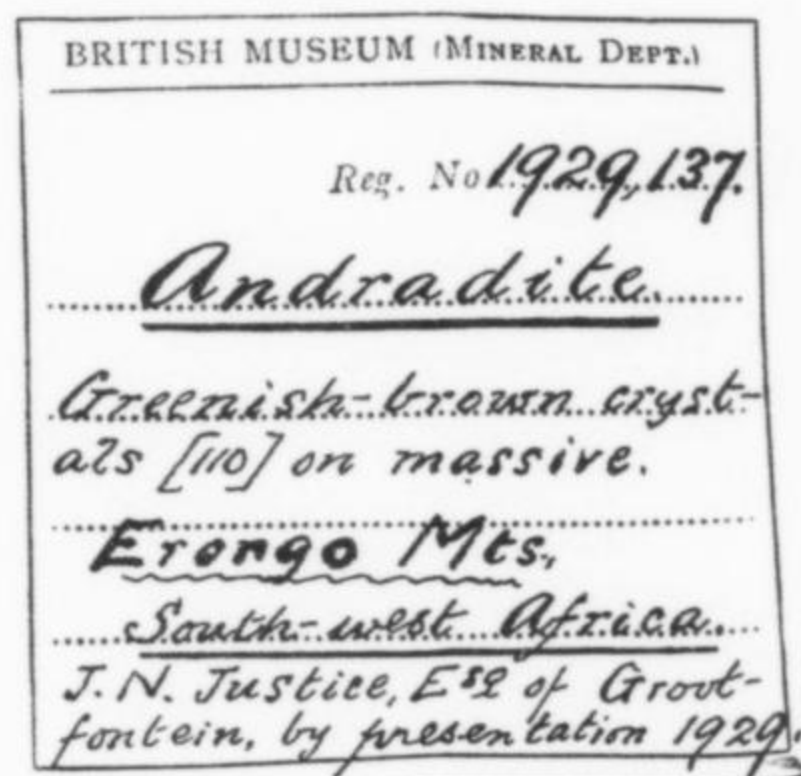 BRITISH MUSEUM (MINERAL DEPT.)
Reg. No 1929,137.
Andradite.
Greenish-brown cryst-
als [110] on massive.
Erongo Mts.,
South-west Africa.
J. N. Justice, Esq of Groot-
fontein, by presentation 1929.